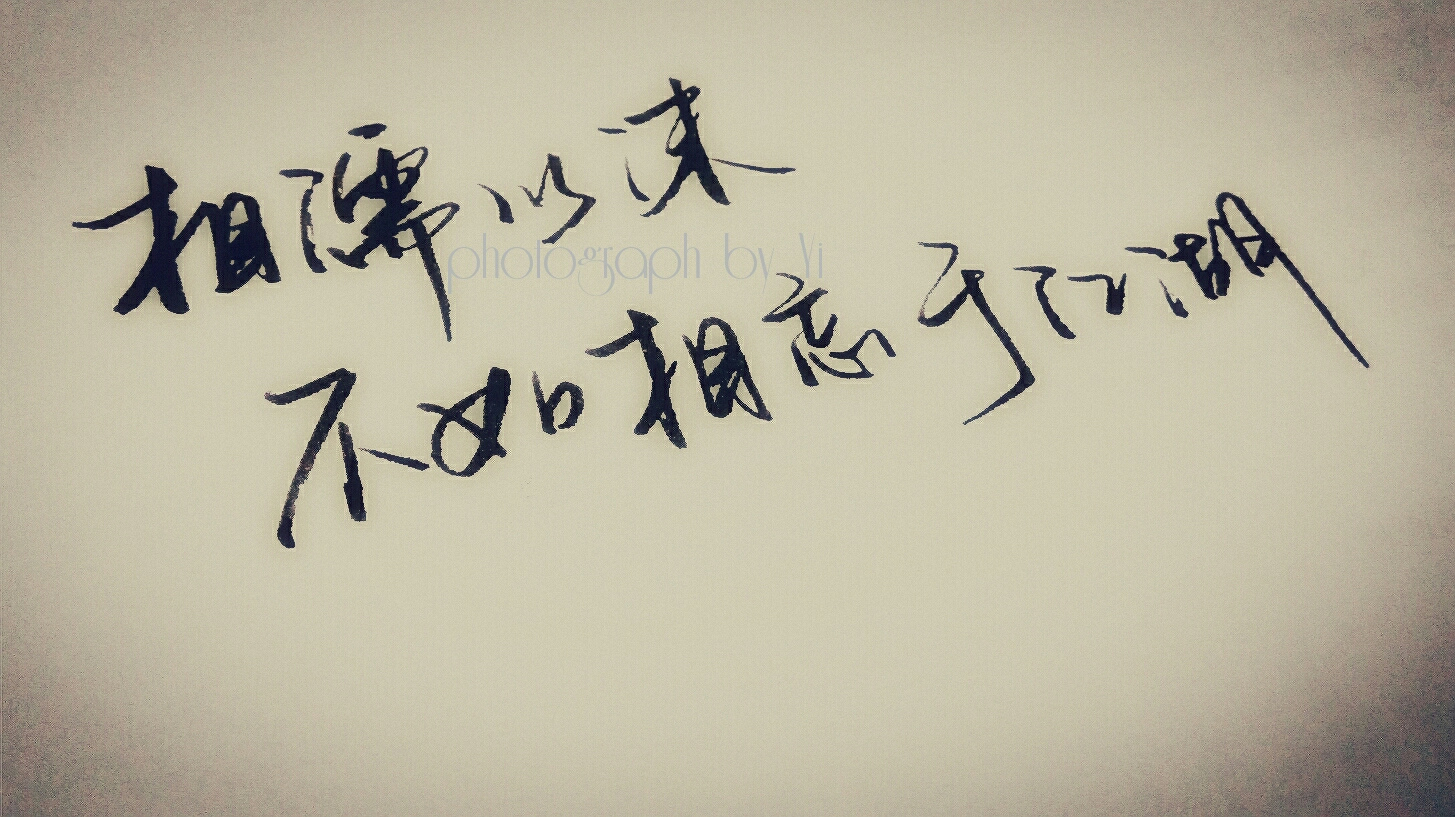 相濡以沫
photograph by Yi
不如相忘于江湖